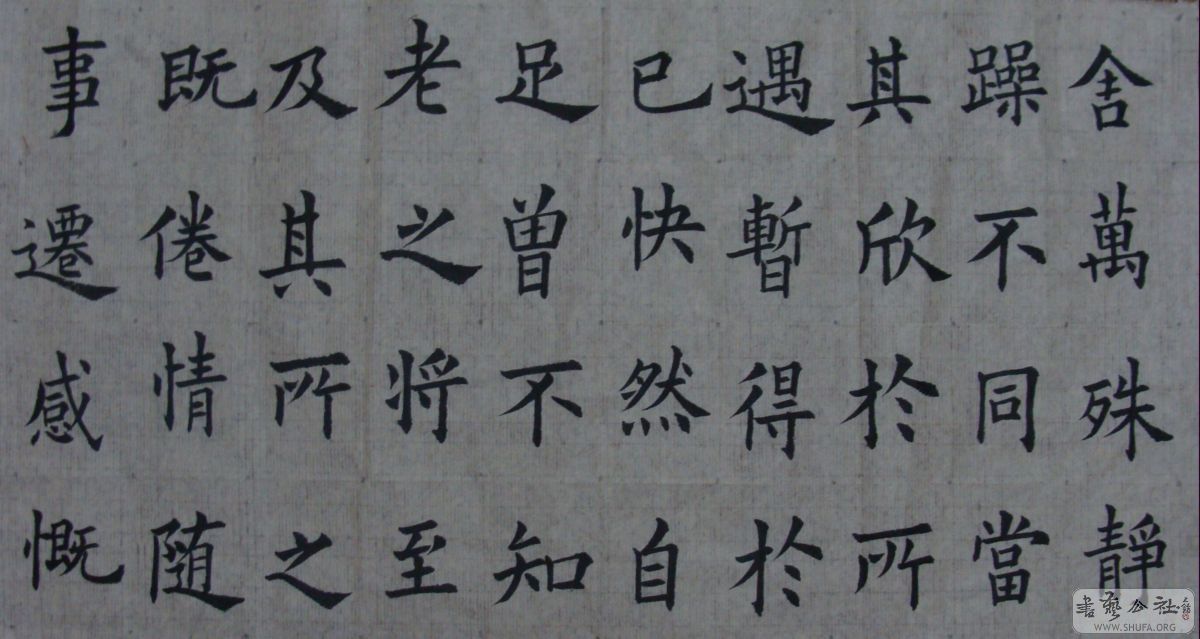 舍萬殊靜
躁不同當
其欣於所
遇暫得於
已快然自
足曽不知
老之將至
及其所之
既倦情随
事遷感慨
書藝公社
WWW.SHUFA.ORG